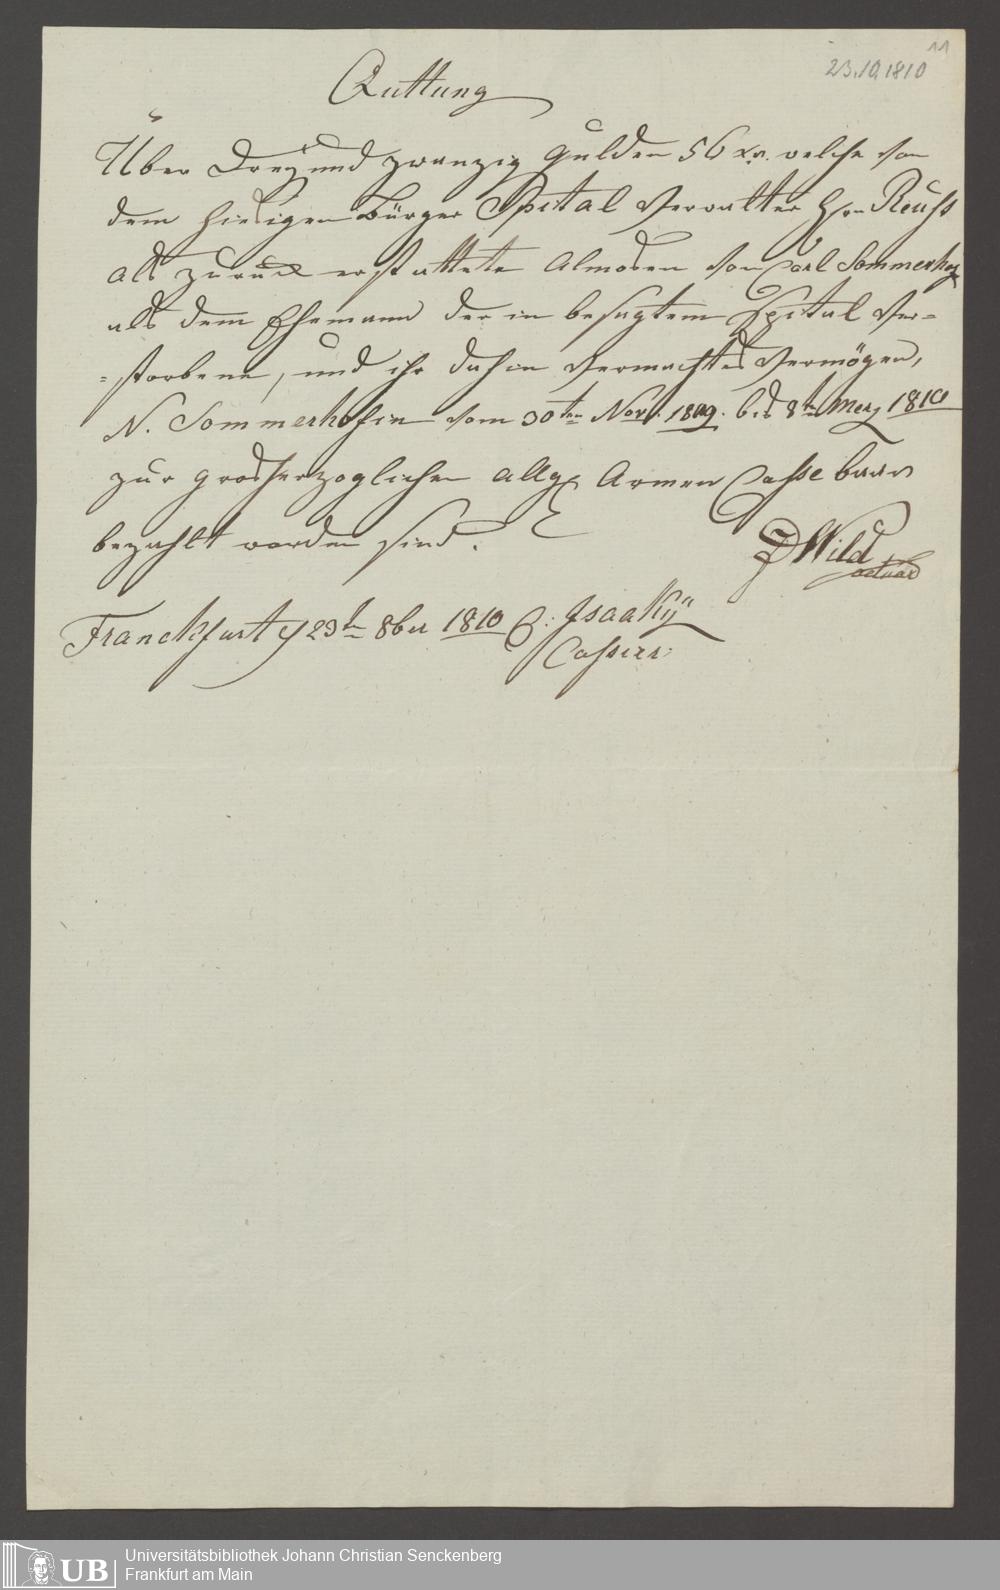 11
23.10.1810
Quittung
Über Dreÿ und zwanzig Gulden 56 xr. welche von
dem hiesigen Bürger Spital Verwalter Hrn Reuhs
als zuruck erstattete Almosen von Carl Sommerhof
als dem Ehemann der in besagtem Spital Ver=
=storbene, und ihr dahin vermachtes Vermögen,
N. Sommerhofin vom 30ten Novr. 1809. bis 8ten Merz 1810
zur grosherzoglichen allg. Armen Cahse baar
bezahlt worden sind.
D Wild
actuar
Franckfurt d 23ten 8ber 1810
C: Isaaky
Cahsier:
UB
Universitätsbibliothek Johann Christian Senckenberg
Frankfurt am Main